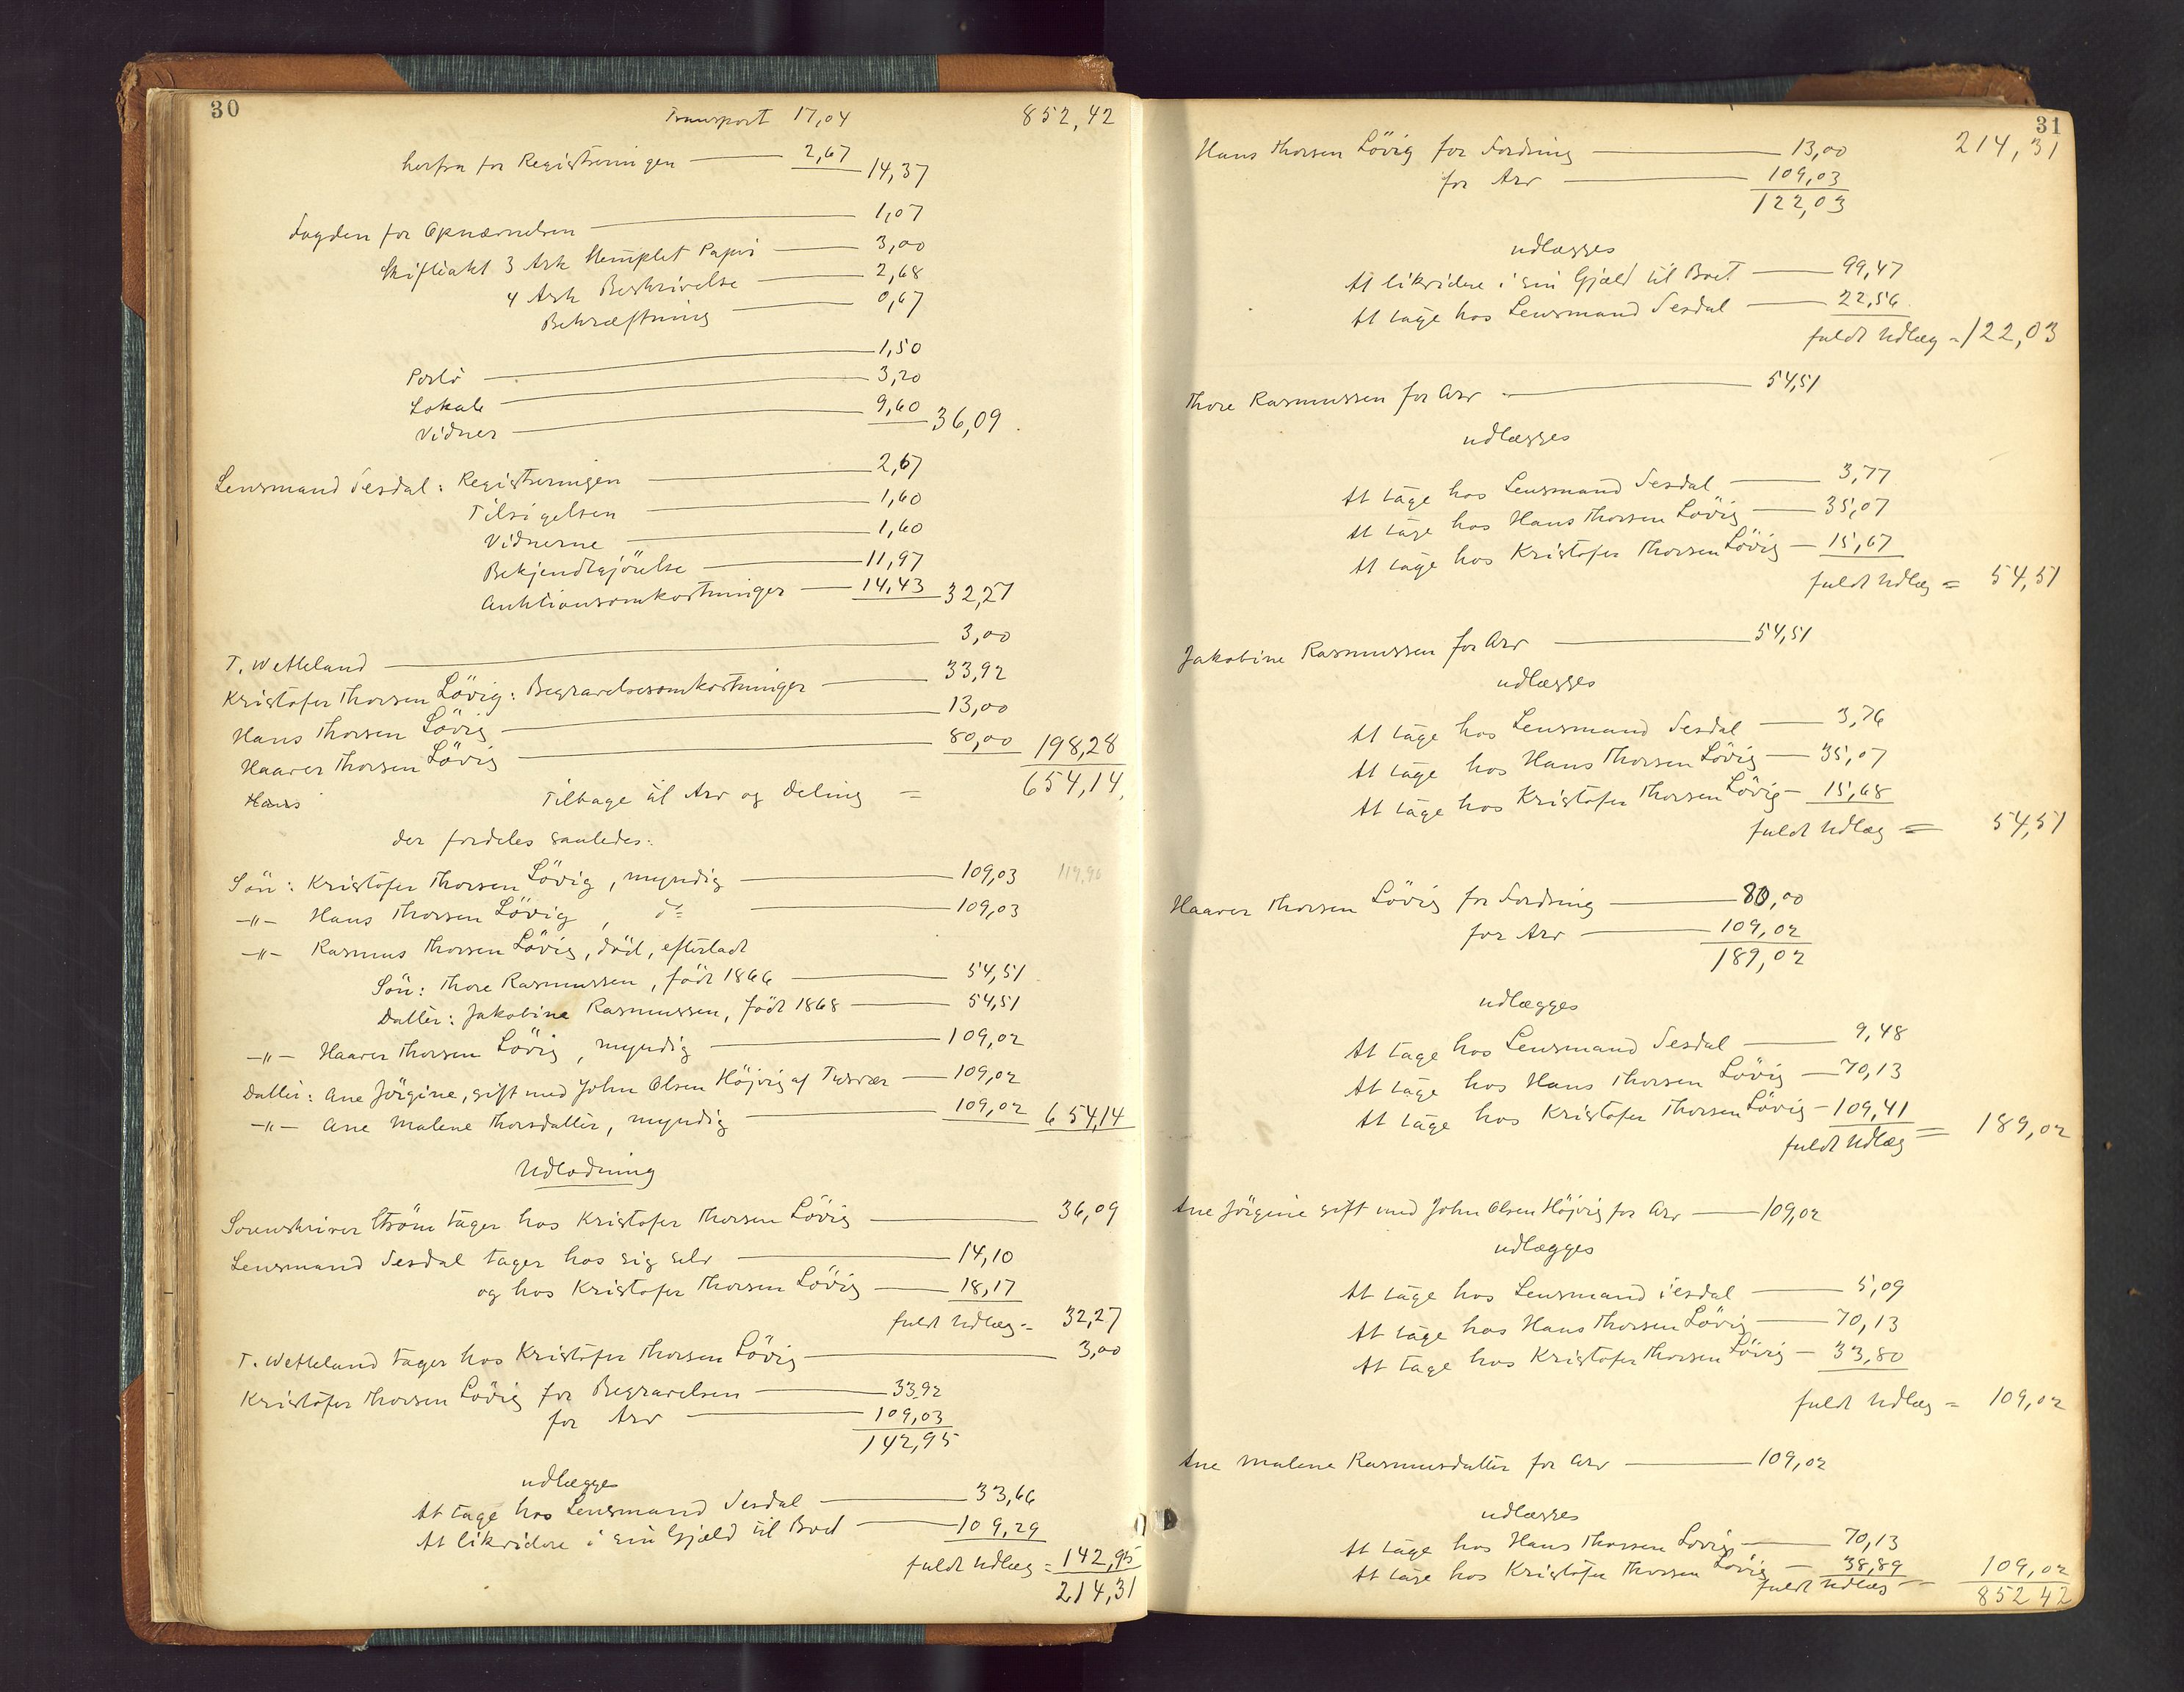 30
Transport 17,04 852,42
herfra for Registreringen 2,67 14,37
for Opnævnelsen 1,07
Skifteakt 3 Ark stemplet Papir 3,00
4 Ark Beskrivelse 2,68
Bekræftning 0,67
Porto 1,50
Lokale 3,20
Vidner 9,60 36,09
Lensmand Sesdal: Registreringen 2,67
Tilsigelsen 1,60
Vidnerne 1,60
Bekjendtgjörelse 11,97
Auktionsomkostninger 14,43 32,27
T. Wetteland 3,00
Kristofer Thorsen Lövig: Begravelsesomkostninger 33,92
Hans Thorsen Lövig 13,00
Haaver Thorsen Lövig 80,00 198,28
Hans Tilbage til Arv og Deling = 654,14
der fordeles saaledes:
Sön: Kristofer Thorsen Lövig, myndig 109,03
-"- Hans Thorsen Lövig, do 109,03
-"- Rasmus Thorsen Lövig, död, efterladt
Sön: Thore Rasmussen, födt 1866 54,51
Datter: Jakobine Rasmussen, födt 1868 54,51
-"- Haaver Thorsen Lövig, myndig 109,02
Datter: Ane Jörgine, gift med John Olsen Höjvig af Tysvær 109,02
-"- Ane Malene Thorsdatter, myndig 109,02 654,14
Udlodning
Sorenskriver Ström tager hos Kristofer Thorsen Lövig 36,09
Lensmand Sesdal tager hos sig selv 14,10
og hos Kristofer Thorsen Lövig 18,17
fuldt Udlæg = 32,27
T. Wetteland tager hos Kristofer Thorsen Lövig 3,00
Kristofer Thorsen Lövig for Begravelsen 33,92
for Arv 109,03
142,95
udlægges
At tage hos Lensmand Sesdal 33,66
At likvidere i sin Gjæld til Boet 109,29
fuldt Udlæg = 142,95
214,31
31
Hans Thorsen Lövig for Fordring 13,00 214,31
for Arv 109,03
122,03
udlægges
At likvidere i sin Gjæld til Boet 99,47
At tage hos Lensmand Sesdal 22,56
fuldt Udlæg = 122,03
Thore Rasmussen for Arv 54,51
udlægges
At tage hos Lensmand Sesdal 3,77
At tage hos Hans Thorsen Lövig 35,07
At tage hos Kristofer Thorsen Lövig 15,67
fuldt Udlæg = 54,51
Jakobine Rasmussen for Arv 54,51
udlægges
At tage hos Lensmand Sesdal 3,76
At tage hos Hans Thorsen Lövig 35,07
At tage hos Kristofer Thorsen Lövig 15,68
fuldt Udlæg = 54,51
Haaver Thorsen Lövig for Fordring 80,00
for Arv 109,02
189,02
udlægges
At tage hos Lensmand Sesdal 9,48
At tage hos Hans Thorsen Lövig 70,13
At tage hos Kristofer Thorsen Lövig 109,41
fuldt Udlæg = 189,02
Ane Jörgine gift med John Olsen Höjvig for Arv 109,02
udlægges
At tage hos Lensmand Sesdal 5,09
At tage hos Hans Thorsen Lövig 70,13
At tage hos Kristofer Thorsen Lövig 33,80
fuldt Udlæg = 109,02
Ane Malene Rasmusdatter for Arv 109,02
udlægges
At tage hos Hans Thorsen Lövig 70,13
At tage hos Kristofer Thorsen Lövig 38,89
fuldt Udlæg = 109,02
852 42